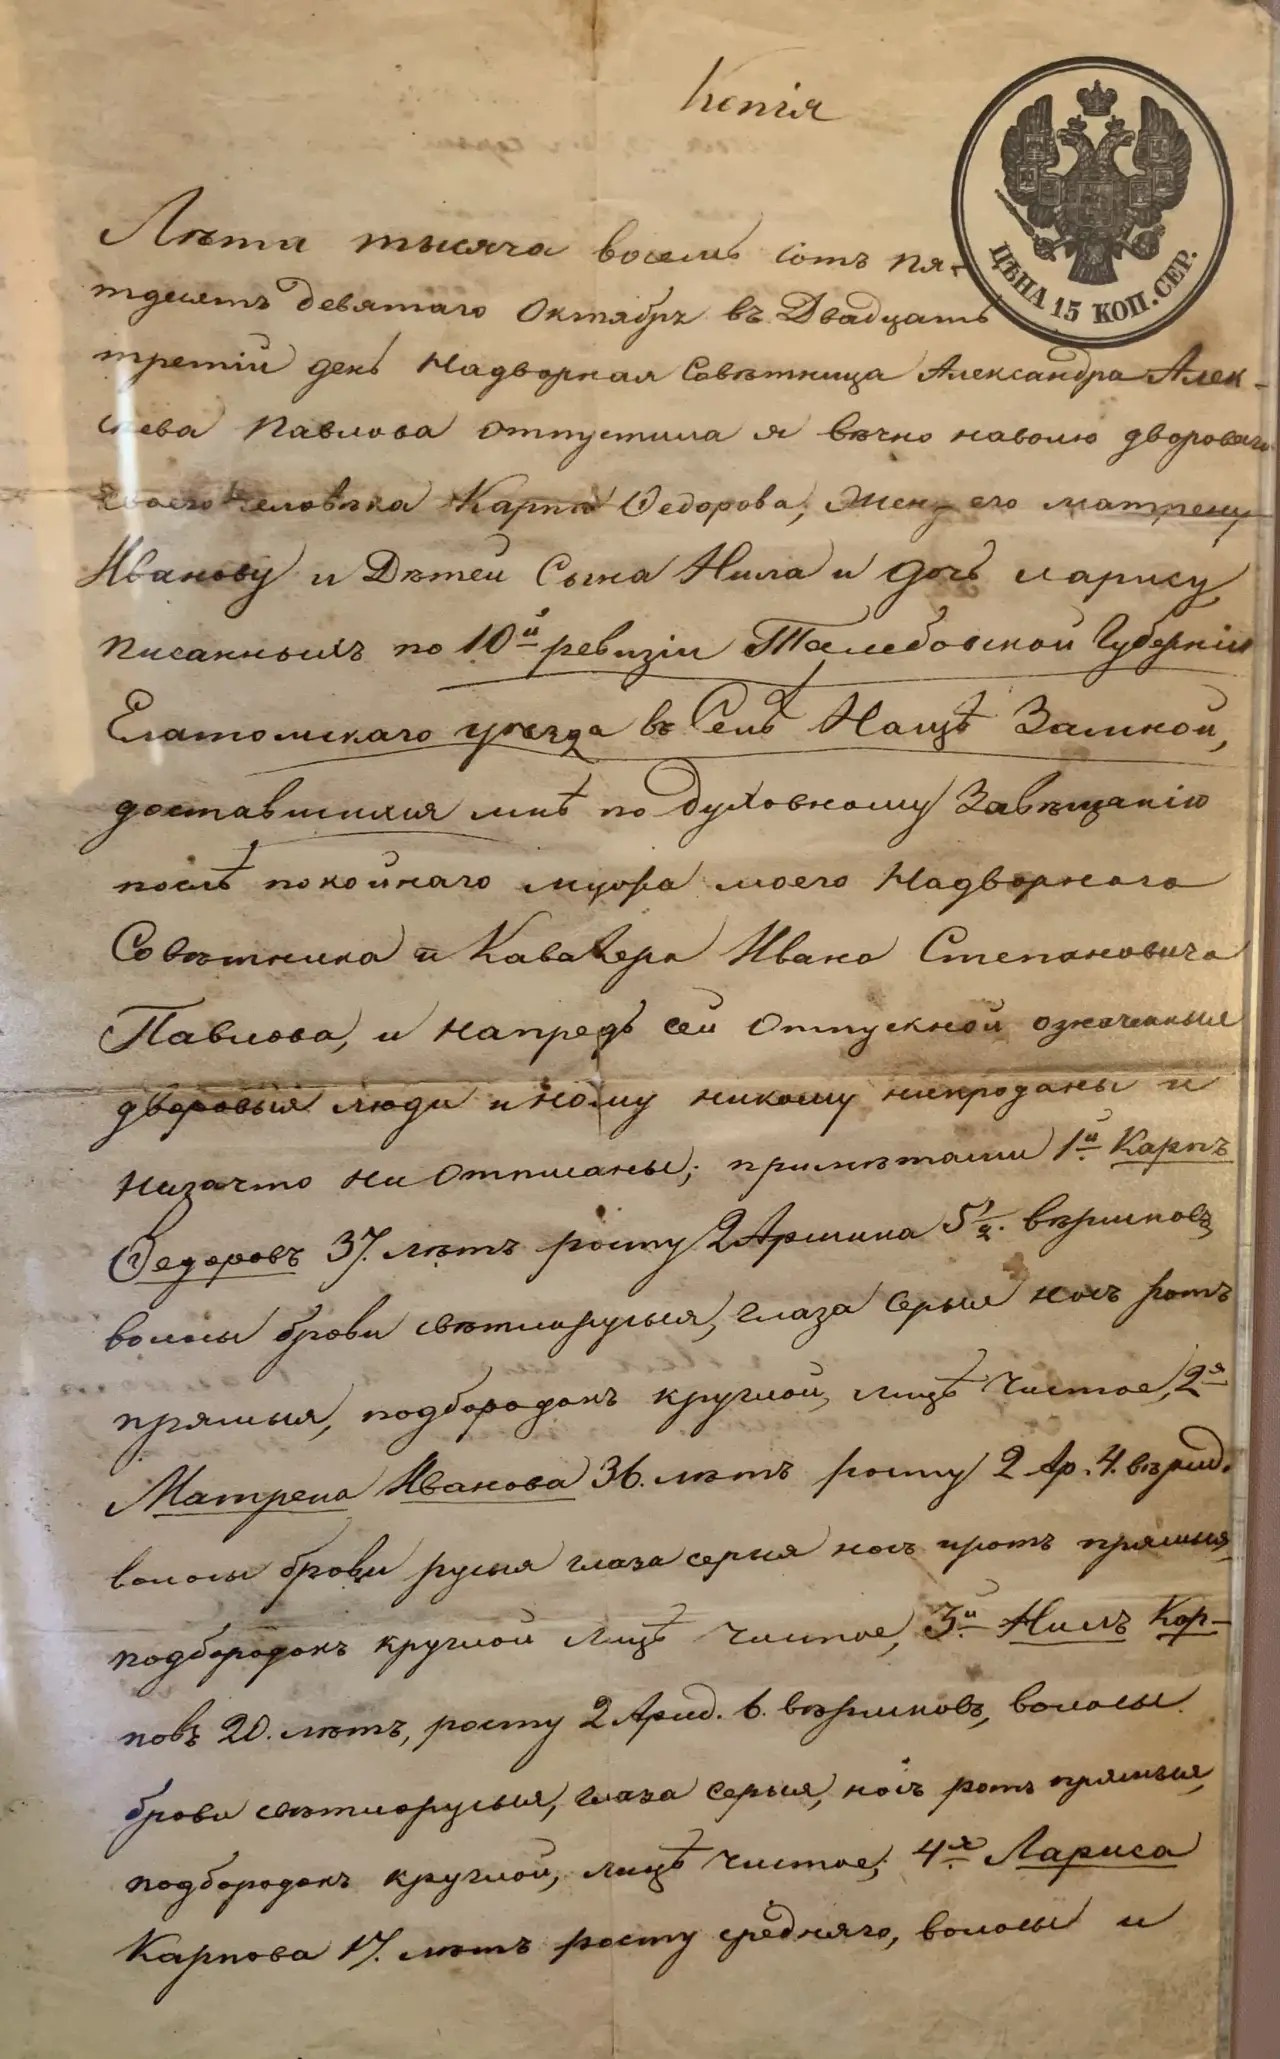 Копія
ЦѢНА 15 КОП. СЕР.
Лѣта тысяча восемь сотъ пя-
тдесятъ девятаго Октября въ Двадцать
третій день Надворная Совѣтница Александра Алек-
сѣева Павлова отпустила я вѣчно наволю двороваго
своего человѣка Карпа Федорова, Жену его матрену
Иванову и Дѣтей Сына Нила и дочь ларису
писанныхъ по 10й ревизіи Тамбовской Губерніи
Елатомскаго уѣзда въ Селѣ
доставшихся мнѣ по духовному Завѣщанію
послѣ покойнаго мужа моего Надворнаго
Совѣтника и Кавалера Ивана Степановича
Павлова, и напредь сей отпускной означенныя
дворовыя люди иному никому непроданы и
низачто ни отписаны; примѣтами 1й Карпъ
Федоровъ 37. лѣтъ росту 2 Аршина 5 1/2. вѣршковъ,
волосы брови свѣтлорусыя, глаза серыя носъ ротъ
прямыя, подбородокъ круглой, лицѣ чистое, 2я
Матрена Иванова 36. лѣтъ росту 2 Ар. 4. вѣрш.
волосы брови русыя глаза серыя носъ иротъ прямыя,
подбородокъ круглой лицѣ чистое, 3й Нилъ Кар-
повъ 20. лѣтъ, росту 2 Арш. 6. вѣршковъ, волосы
брови свѣтлорусыя, глаза серыя, носъ ротъ прямыя,
подбородокъ круглой, лицѣ чистое; 4я Лариса
Карпова 17. лѣтъ росту средняго, волосы и